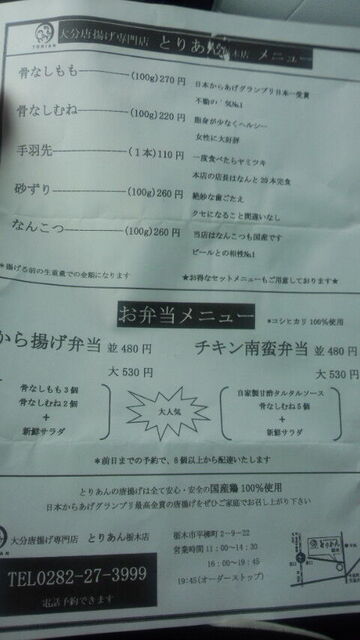 TORIAN
大分唐揚げ専門店 とりあん 栃木店 メニュー
骨なしもも (100g)270円
日本からあげグランプリ日本一受賞
不動の人気№1
骨なしむね (100g)220円
脂身が少なくヘルシー
女性に大好評
手羽先 (1本)110円
一度食べたらヤミツキ
本店の店長はなんと20本完食
砂ずり (100g)260円
絶妙な歯ごたえ
クセになること間違いなし
なんこつ (100g)260円
当店はなんこつも国産です
ビールとの相性№1
*揚げる前の生重量での金額になります
★お得なセットメニューもご用意しております★
お弁当メニュー
*コシヒカリ100%使用
から揚げ弁当 並480円
大530円
チキン南蛮弁当 並480円
大530円
骨なしもも3個
骨なしむね2個
+
新鮮サラダ
大人気
自家製甘酢タルタルソース
骨なしむね5個
+
新鮮サラダ
*前日までの予約で、8個以上から配達いたします
とりあんの唐揚げは全て安心・安全の国産鶏100%使用
日本からあげグランプリ最高金賞の唐揚げをぜひご家庭でお召し上がり下さい
大分唐揚げ専門店 とりあん栃木店
栃木市平柳町2-9-22
営業時間 11:00~14:30
16:00~19:45
19:45(オーダーストップ)
TEL0282-27-3999
電話予約できます
とりあん